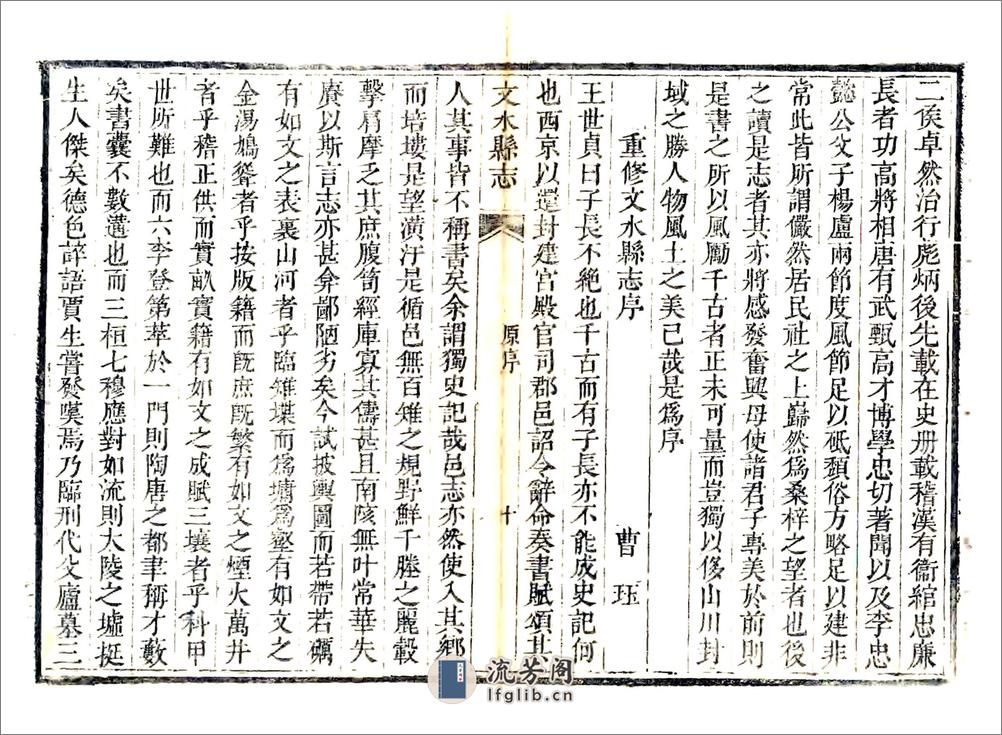 二侯卓然治行彪炳後先載在史册載稽漢有衞綰忠廉
長者功高將相唐有武甄高才博學忠切著聞以及李忠
懿公父子楊盧兩節度風節足以砥頽俗方略足以建非
常此皆所謂儼然居民社之上巋然爲桑梓之望者也後
之讀是志者其亦將感發奮興毋使諸君子專美於前則
是書之所以風勵千古者正未可量而豈獨以侈山川封
域之勝人物風土之美已哉是爲序
重修文水縣志序
曹珏
王世貞曰子長不絶也千古而有子長亦不能成史記何
也西京以還封建宫殿官司郡邑詔令辭命奏書賦頌其
文水縣志
原序
十
人其事皆不稱書矣余謂獨史記哉邑志亦然使入其鄉
而培塿是望潢汙是循邑無百雉之規野鮮千塍之麗轂
擊肩摩乏其庶腹笥經庫寡其儔甚且南陔無叶常華失
賡以斯言志亦甚弇鄙陋劣矣今試披輿圖而若帶若礪
有如文之表裏山河者乎臨雉堞而爲墉爲壑有如文之
金湯鳩聳者乎按版籍而旣庶旣繁有如文之煙火萬井
者乎稽正供而實畝實籍有如文之成賦三壤者乎科甲
世所難也而六李登第萃於一門則陶唐之都聿稱才藪
矣書囊不數遘也而三桓七穆應對如流則大陵之墟挺
生人傑矣德色誶語賈生嘗發嘆焉乃臨刑代父廬墓三
流芳阁
lfglib.cn